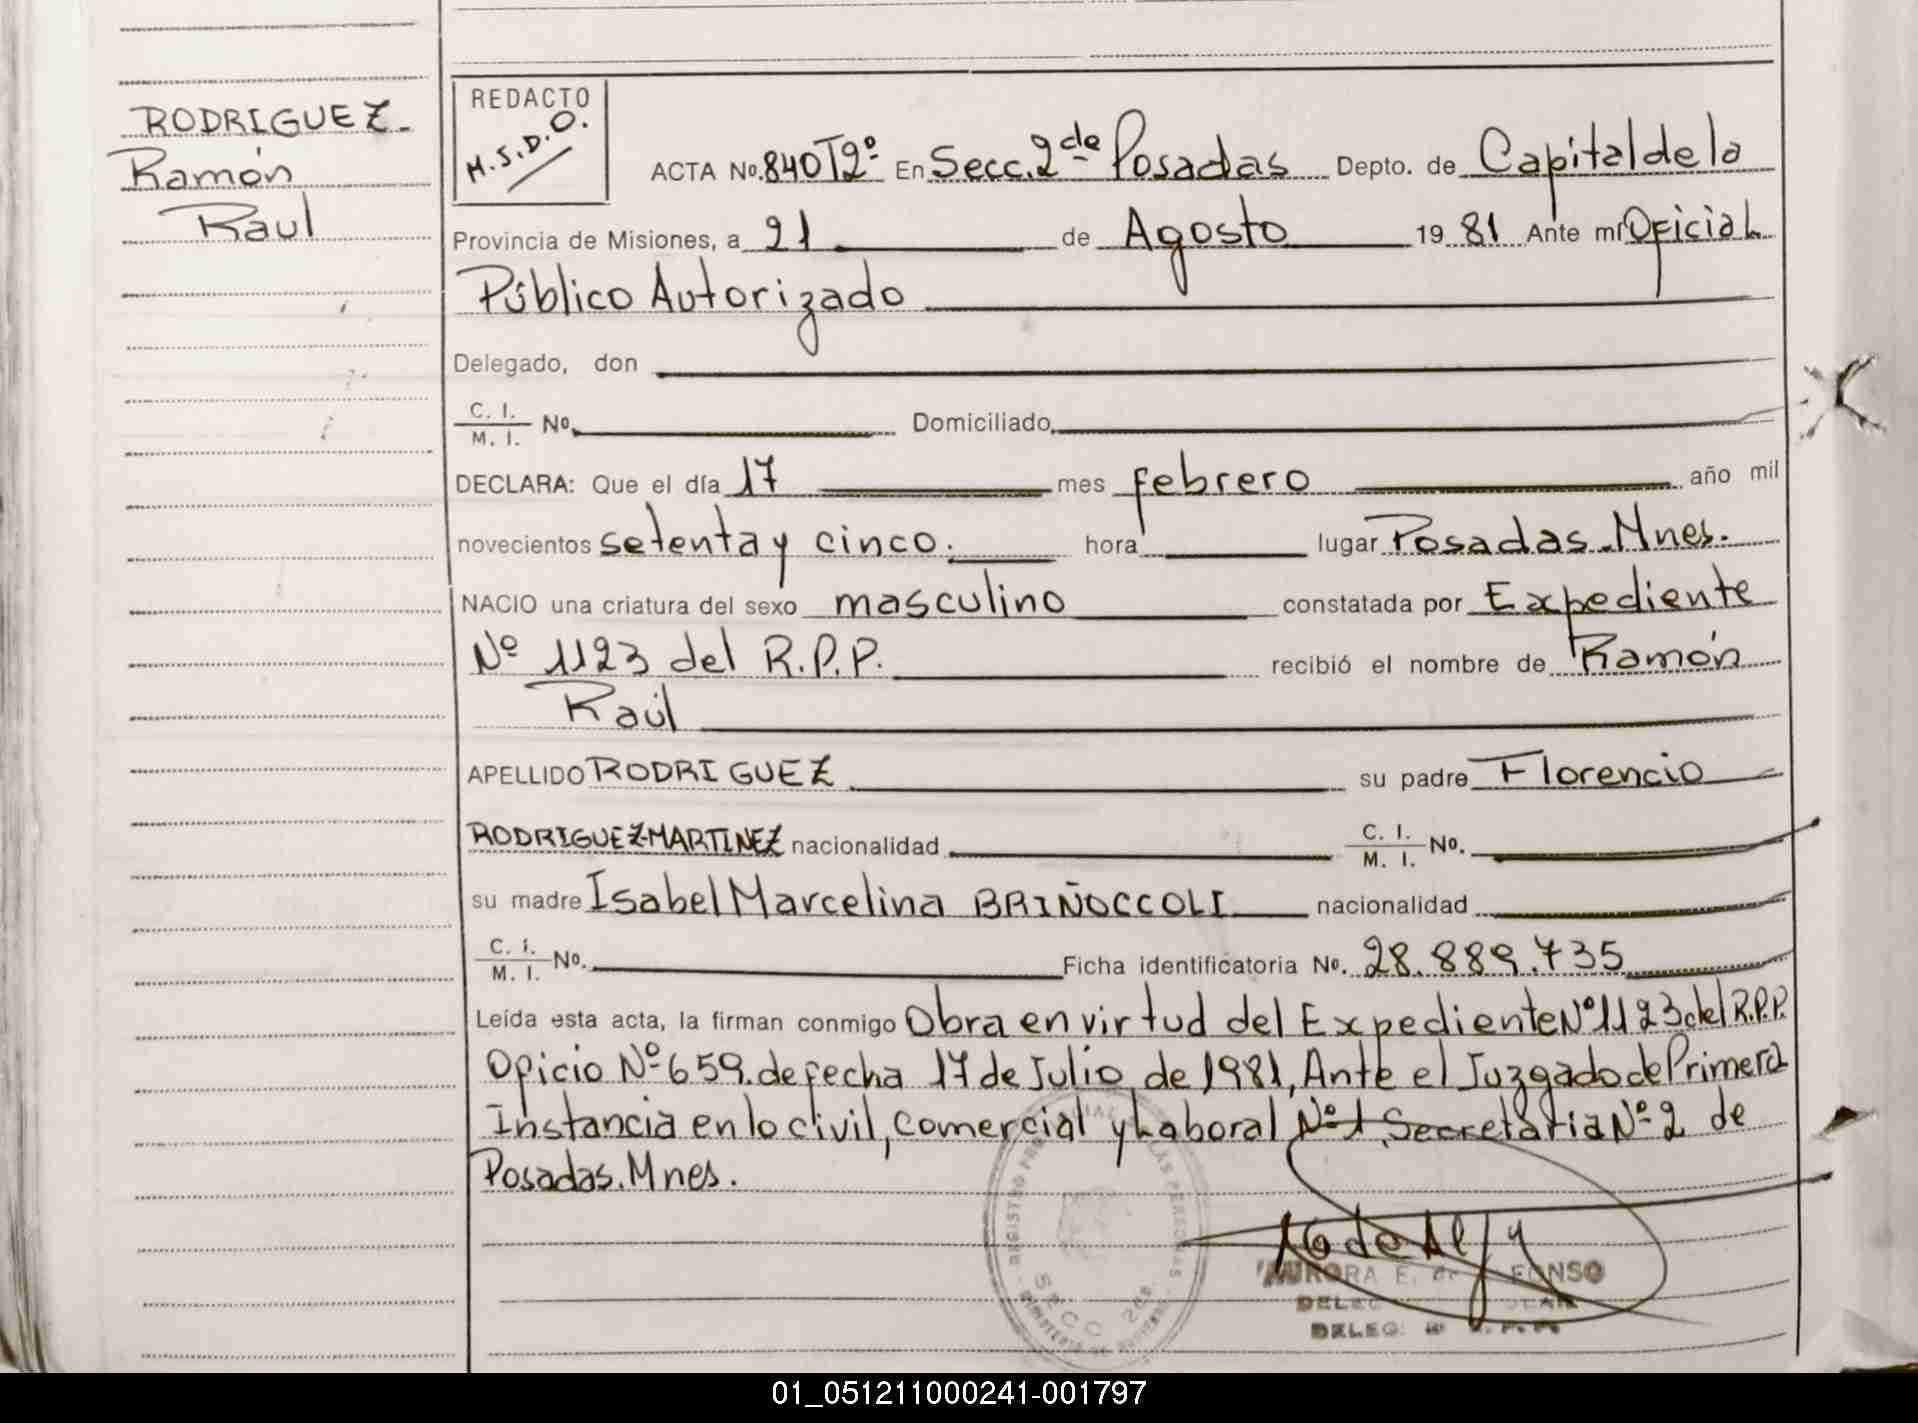 RODRIGUEZ
Ramón
Raul
REDACTO
M.S.D.O.
ACTA No. 840T2º En Secc. 2de Posadas Depto. de Capital de la
Provincia de Misiones, a 21 de Agosto 19 81 Ante mi Oficial
Público Autorizado
Delegado, don
C. I.
M. I. No.
Domiciliado
DECLARA: Que el día 17 mes febrero año mil
novecientos setenta y cinco. hora lugar Posadas. Mnes.
NACIO una criatura del sexo masculino constatada por Expediente
Nº 1123 del R.P.P. recibió el nombre de Ramón
Raúl
APELLIDO RODRIGUEZ su padre Florencio
RODRIGUEZ-MARTINEZ nacionalidad C. I.
M. I. No.
su madre Isabel Marcelina BRIÑOCCOLI nacionalidad
C. I.
M. I. No. Ficha identificatoria No. 28.889.735
Leída esta acta, la firman conmigo Obra en virtud del Expediente Nº 1123 del R.P.P.
Oficio Nº 659. de fecha 17 de Julio de 1981, Ante el Juzgado de Primera
Instancia en lo civil, comercial y Laboral Nº 1 Secretaria Nº 2 de
Posadas. Mnes.
REGISTRO LAS PERSONAS
SECC
AURORA E. de FONSO
DELEG
01_051211000241-001797